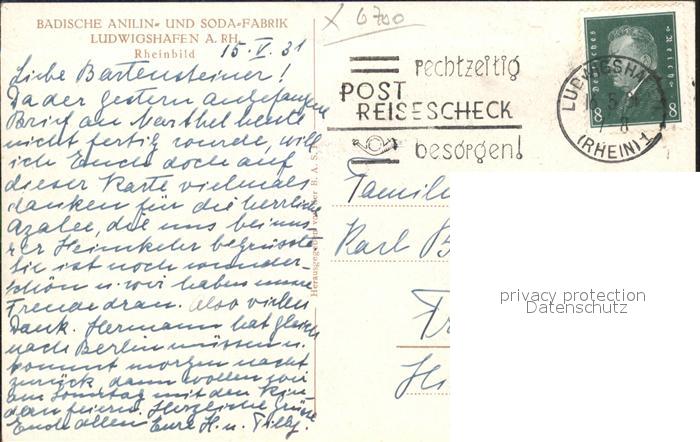 BADISCHE ANILIN- UND SODA-FABRIK
LUDWIGSHAFEN A. RH.
Rheinbild
15. V. 31
Liebe Bartensteiner!
Da der gestern angefangene
Brief an Marthel heute
nicht fertig wurde, will
ich Euch doch auf
dieser Karte vielmals
danken für die herrliche
Azalee, die uns bei uns-
rer Heimkehr begrüsste.
Sie ist noch wunder-
schön u. wir haben unsre
Freude dran. Also vielen
Dank. Hermann hat gleich
nach Berlin müssen u.
kommt morgen nacht
zurück, dann wollen wir
am Sonntag mit den Kin-
dern feiern. Herzliche Grüsse
Euch allen Eure H. u. Tilly.
Herausgegeben von der B. A. S.
x 6700
rechtzeitig
POST
REISESCHECK
besorgen!
Deutsches Reich
8 8
LUDWIGSHA
(RHEIN) 1
Famili
Karl B
Fr
Hi
privacy protection
Datenschutz